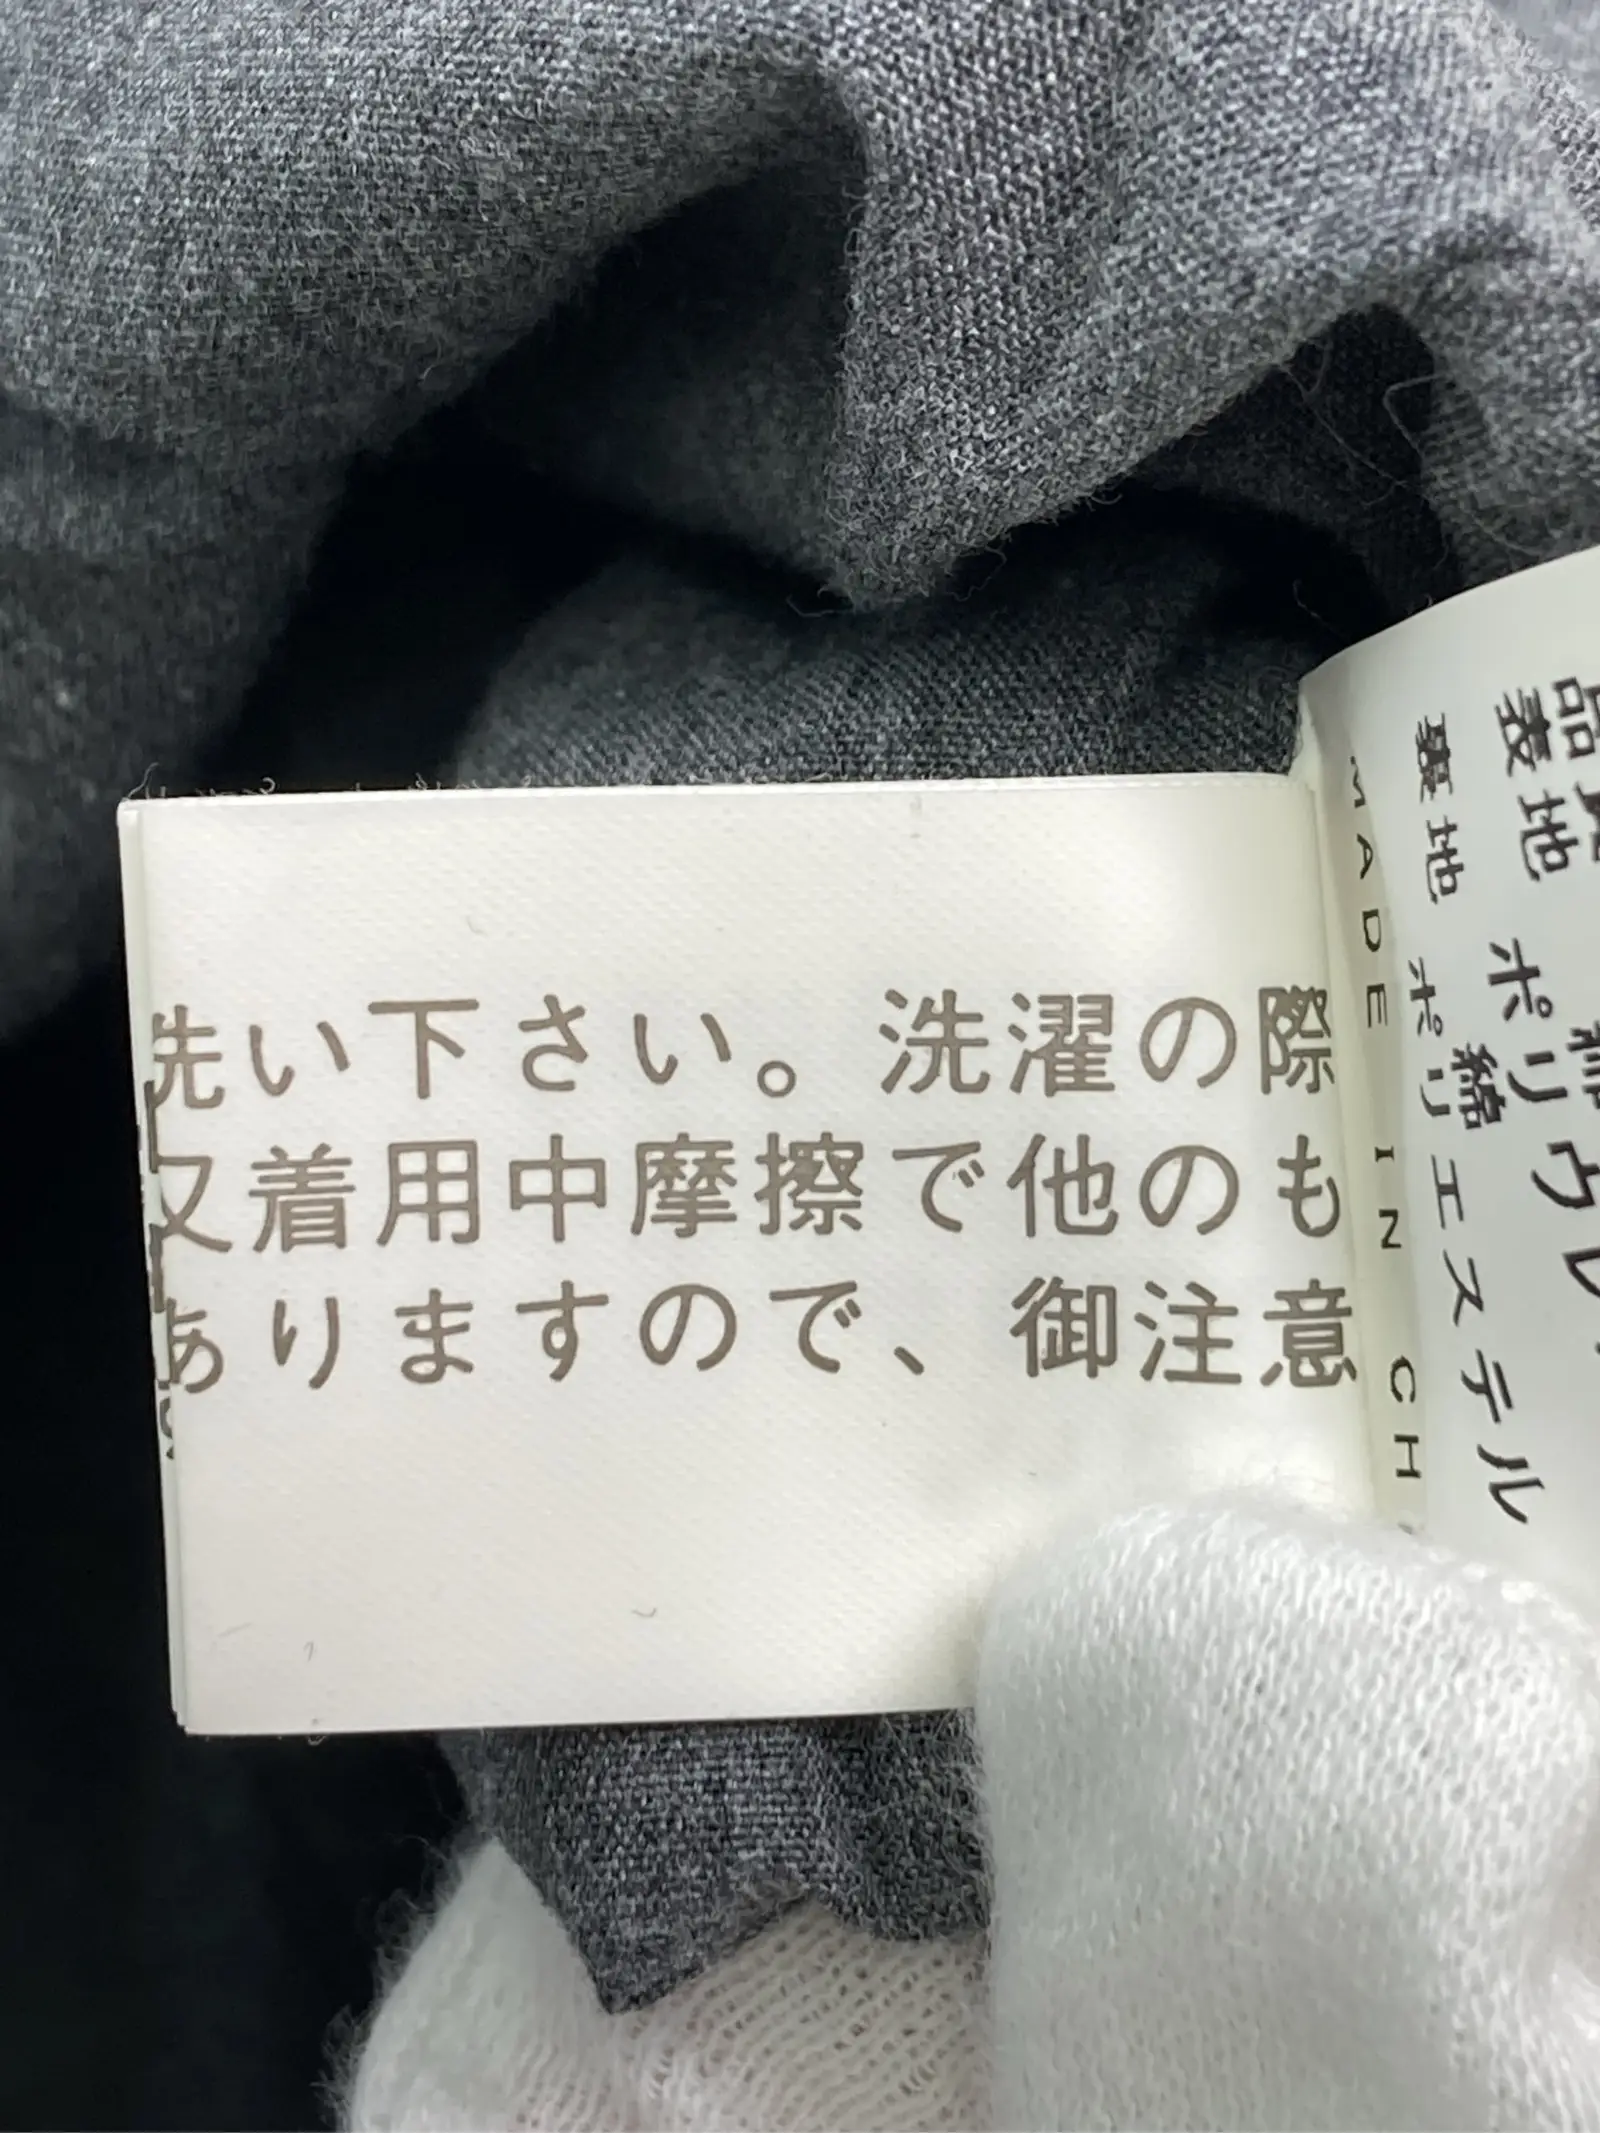 洗い下さい。洗濯の際
又着用中摩擦で他のも
ありますので、御注意
品
表地 ポリウレ
裏地 ポリエステル
綿
MADE IN CH